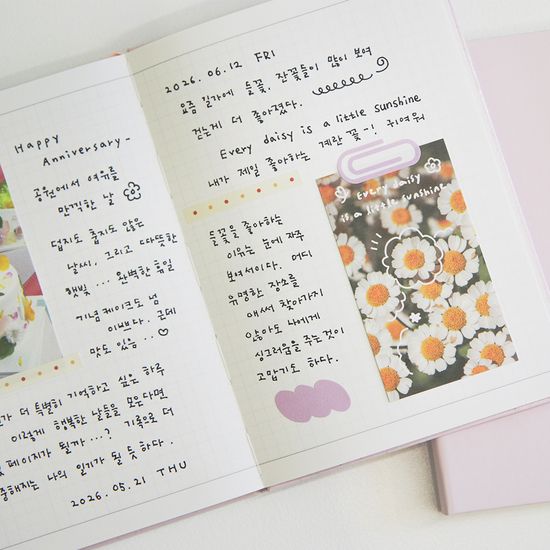 Happy
Anniversary~
공원에서 여유를
만끽한 날
덥지도 춥지도 않은
날씨, 그리고 따뜻한
햇빛... 완벽한 휴일
기념케이크도 넘
이쁘다. 근데
맛도 있음...♡
더 특별히 기억하고 싶은 하루
이렇게 행복한 날들을 모은다면
페이지가 될까...? 기록으로 더
중해지는 나의 일기가 될 듯 하다.
2026.05.21 THU
2026.06.12 FRI
요즘 길가에 들꽃, 잔꽃들이 많이 보여
걷는게 더 좋아졌다.
Every daisy is a little sunshine
내가 제일 좋아하는 계란 꽃~! 귀여워
들꽃을 좋아하는
이유는 눈에 자주
보여서이다. 어디
유명한 장소를
애써 찾아가지
않아도 나에게
싱그러움을 주는것이
고맙기도 하다.
Every daisy
is a little sunshine